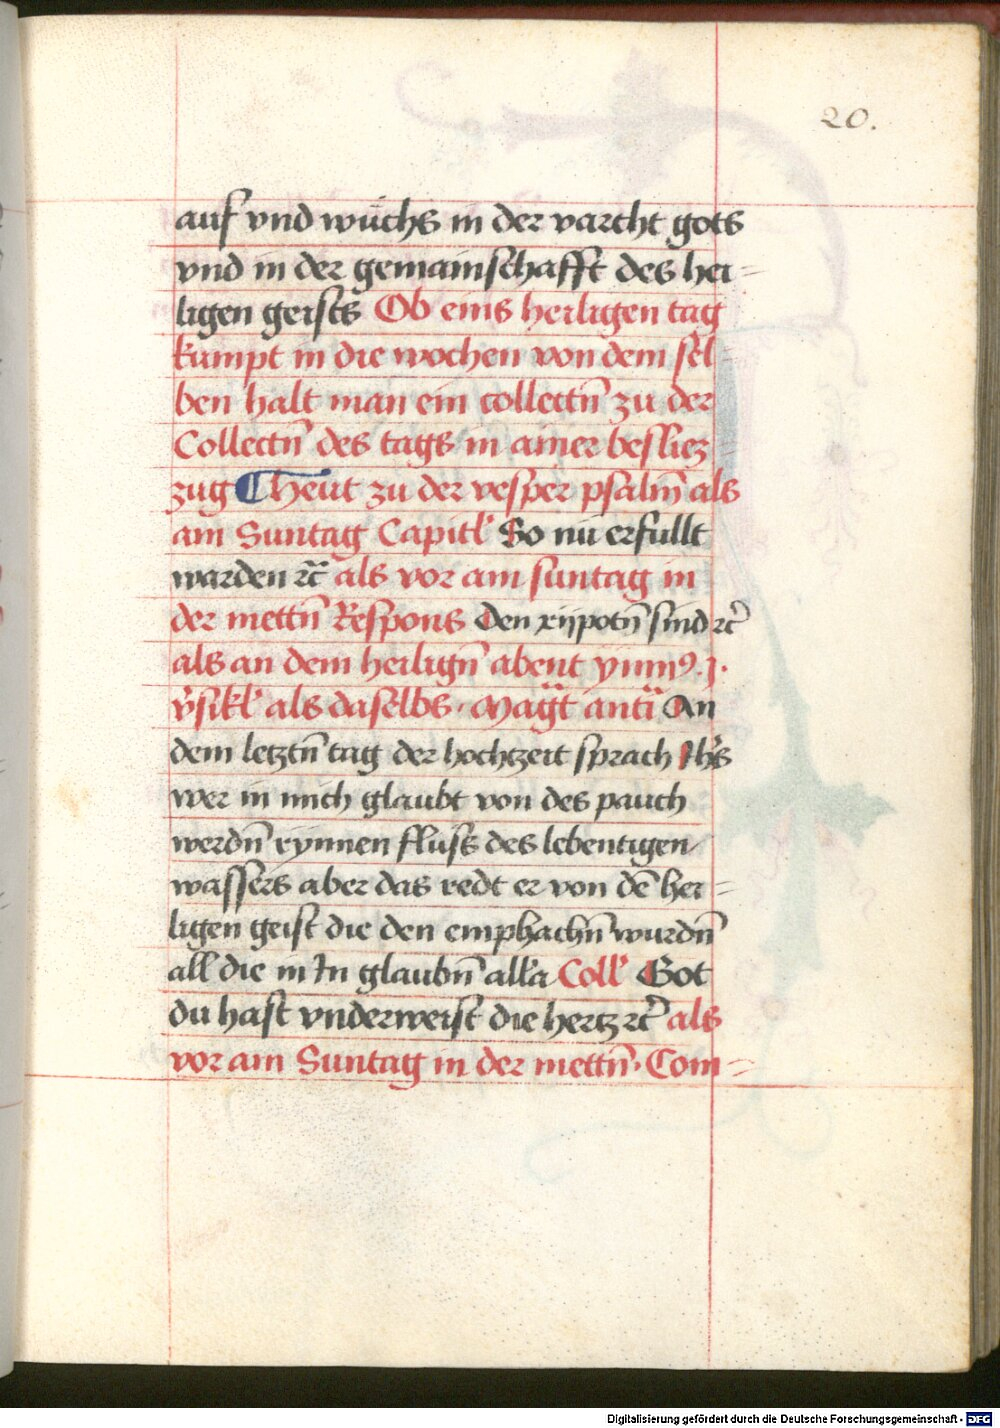 20.
auf vnd wuchs in der varcht gots
vnd in der gemainschafft des hei-
ligen geists Ob eins heiligen tag
kumpt in die wochen von dem sel
ben halt man ein collectn̄ zu der
Collectn̄ des tags in ainer besliez
zug Heut zu der vesper psalm̄ als
am Suntag Capitl' So nu erfullt
warden ⁊c̄ als vor am suntag in
der mettn̄ Respons Den xijpotn̄ sind ⁊c̄
als an dem heilign̄ abent ymnꝰ .j.
v̓sikl' als daselbs · Mag̃t anti An
dem letztn̄ tag der hochzeit sprach Jhs̄
wer in mich glaubt von des pauch
werdn̄ rynnen fluss des lebentigen
wassers aber das redt er von dē hei-
ligen geist die den emphachn̄ wurdn̄
all die in Jn glaubn̄ all'a Coll' Got
du hast vnderweist die hertz ⁊c̄ als
vor am Suntag in der mettn̄ · Com-
Digitalisierung gefördert durch die Deutsche Forschungsgemeinschaft - DFG